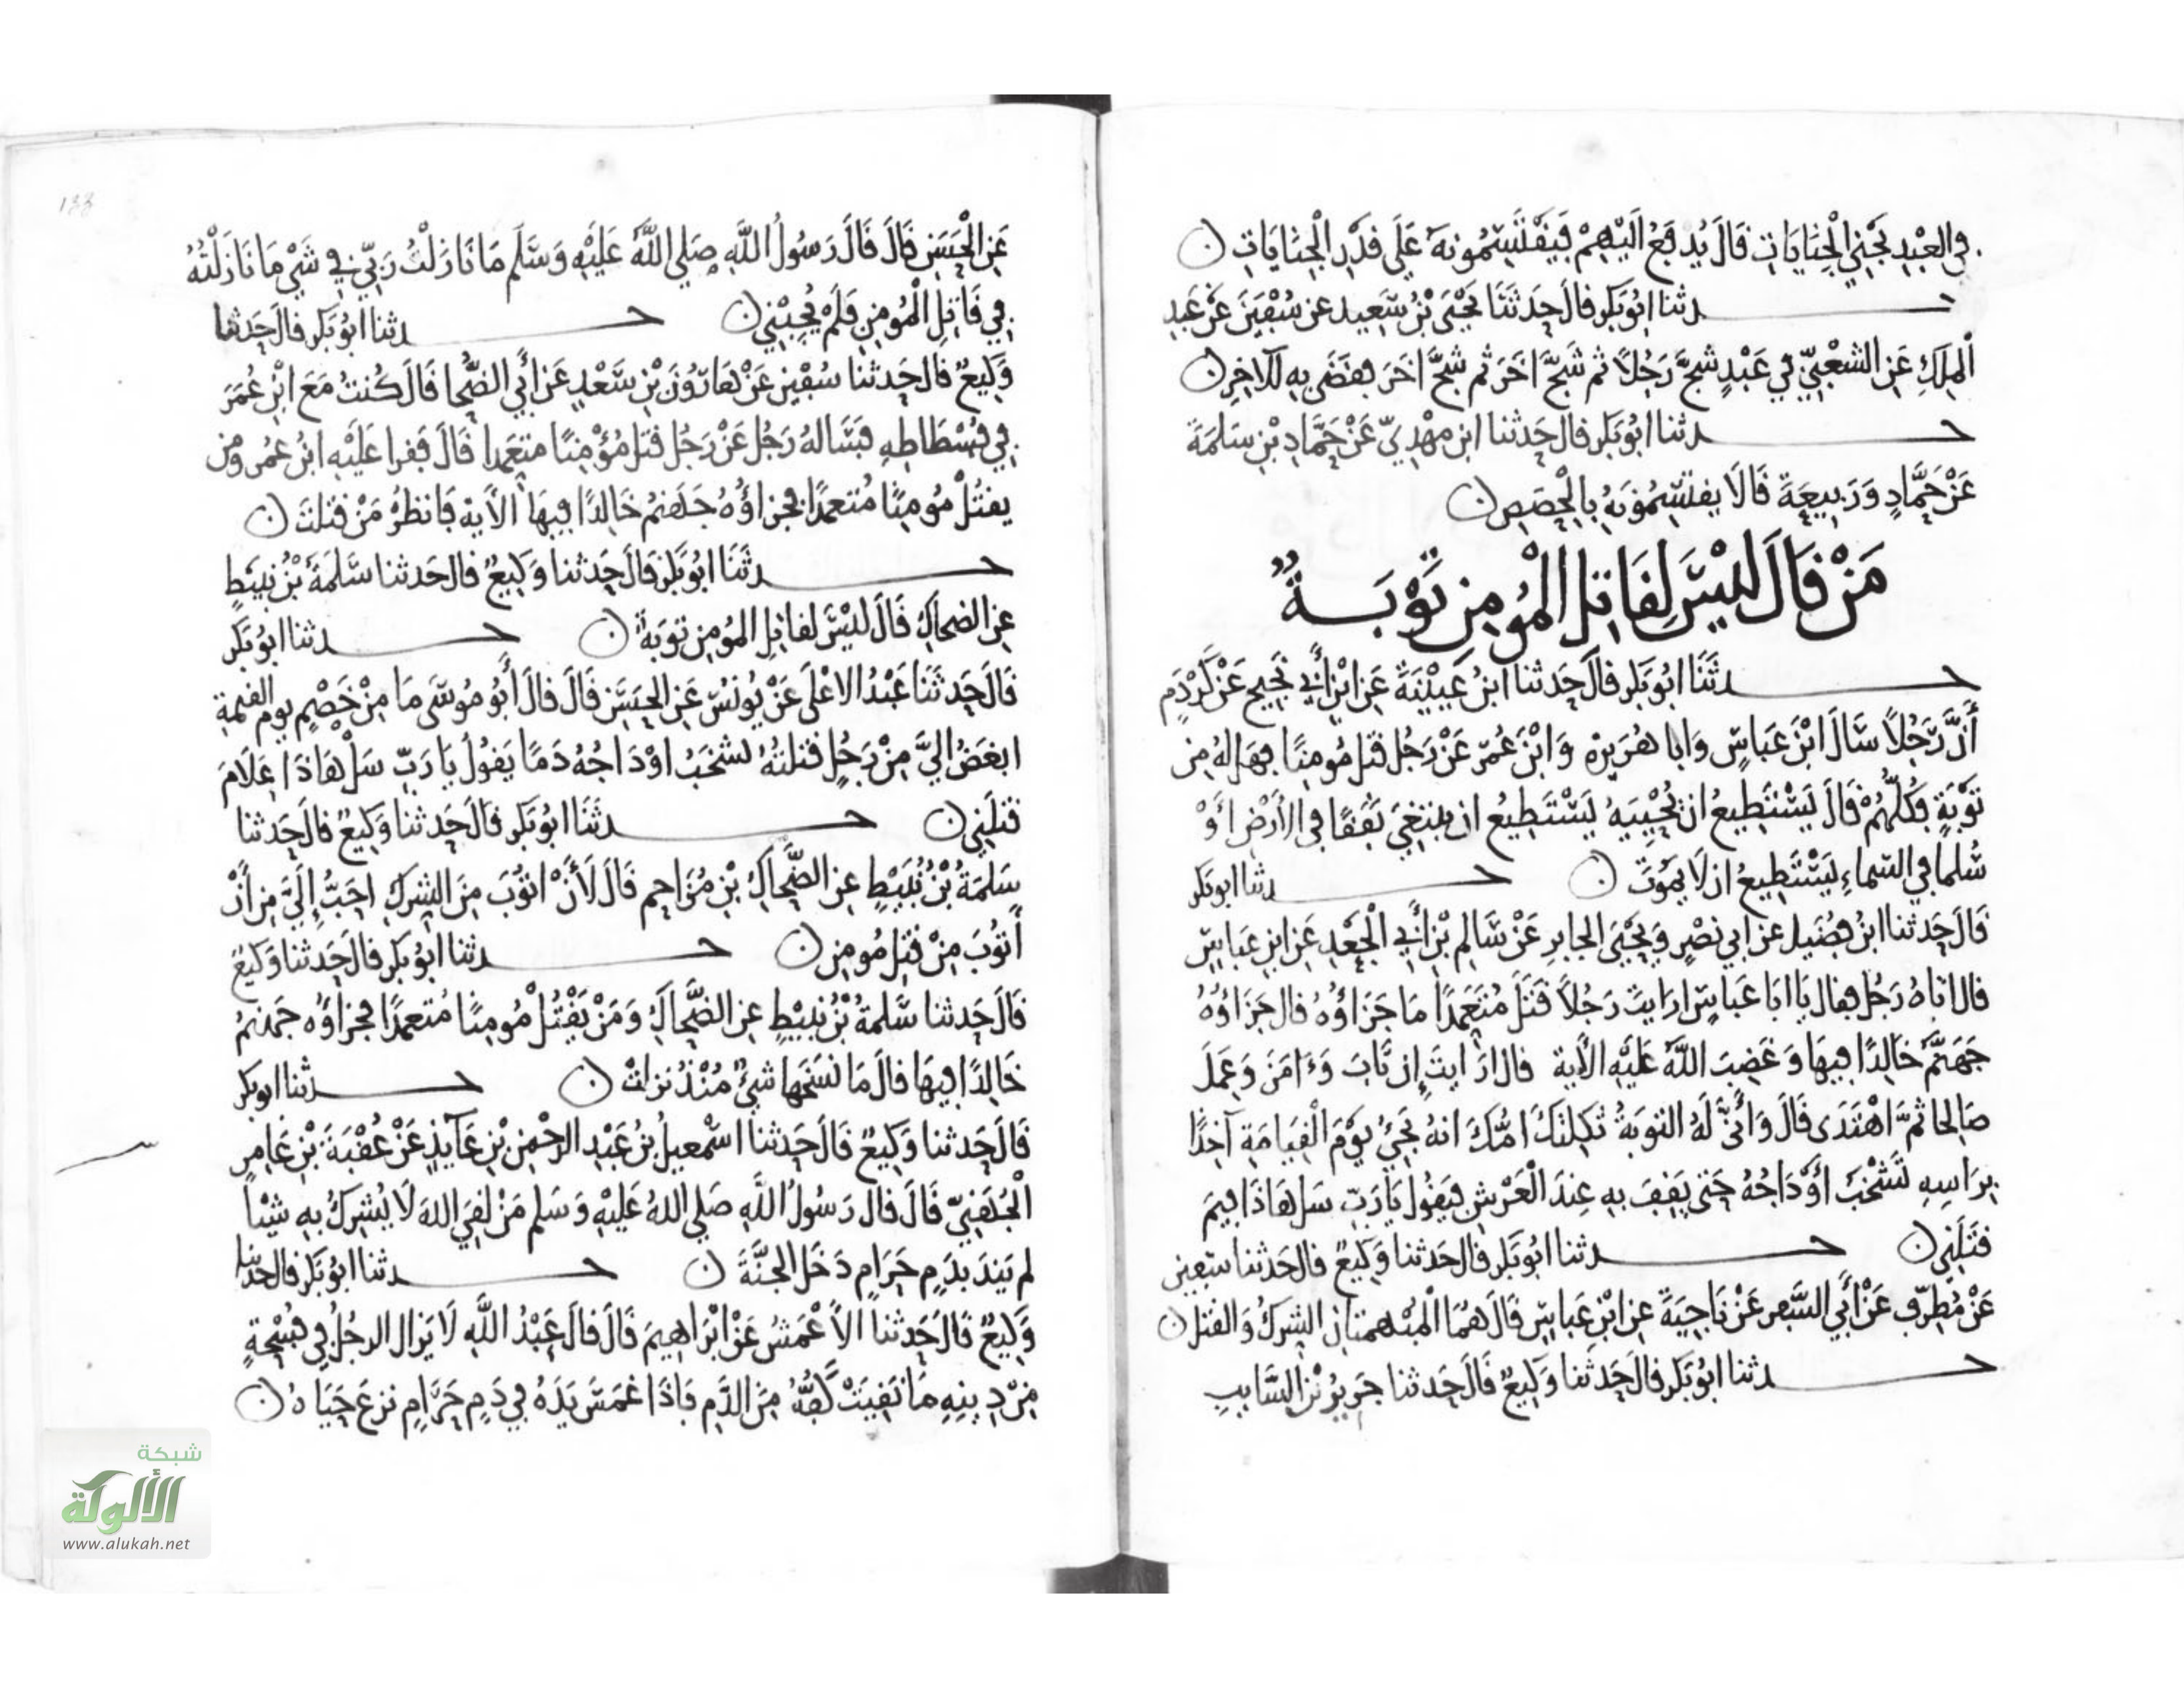 في العبد يجني الجنايات قال يدفع اليهم فيقتسمونه على قدر الجنايات
حدثنا ابو بكر قال حدثنا يحيى بن سعيد عن سفين عن عبد
الملك عن الشعبي في عبد شج رجلا ثم شج اخر ثم شج اخر فقضى به للاخر
حدثنا ابو بكر قال حدثنا ابن مهدي عن حماد بن سلمة
عن حماد وربيعة قالا يقتسمونه بالحصص
من قال ليس لقاتل المومن توبة
حدثنا ابو بكر قال حدثنا ابن عيينة عن ابن أبي نجيح عن كردم
أن رجلا سال ابن عباس وابا هريرة وابن عمر عن رجل قتل مومنا فهل له من
توبة فكلهم قال يستطيع ان يحييه يستطيع ان يبتغي نفقا في الأرض أو
سلما في السماء يستطيع ان لا يموت حدثنا ابو بكر
قال حدثنا ابن فضيل عن ابي نصر ويحيى الجابر عن سالم بن أبي الجعد عن ابن عباس
قال اتاه رجل فقال يا ابا عباس ارايت رجلا قتل متعمدا ما جزاؤه قال جزاؤه
جهنم خالدا فيها وغضب الله عليه الأية قال ارايت إن تاب وءامن وعمل
صالحا ثم اهتدى قال وأنى له التوبة ثكلتك امك انه يجيء يوم القيامة آخذا
براسه تشخب أوداجه حتى يقف به عند العرش فيقول يا رب سل هاذا فيم
قتلني حدثنا ابو بكر قال حدثنا وكيع قال حدثنا سفين
عن مطرف عن أبي السفر عن ناجية عن ابن عباس قال هما المبهمتان الشرك والقتل
حدثنا ابو بكر قال حدثنا وكيع قال حدثنا جرير بن السايب
عن الحسن قال قال رسول الله صلى الله عليه وسلم ما نازلت ربي في شي ما نازلته
في قاتل المومن فلم يجبني حدثنا ابو بكر قال حدثنا
وكيع قال حدثنا سفين عن هارون بن سعد عن أبي الضحا قال كنت مع ابن عمر
في فسطاطه فساله رجل عن رجل قتل مؤمنا متعمدا قال فقرا عليه ابن عمر ومن
يقتل مومنا متعمدا فجزاؤه جهنم خالدا فيها الأية فانظر من قتلت
حدثنا ابو بكر قال حدثنا وكيع قال حدثنا سلمة بن نبيط
عن الضحاك قال ليس لقاتل المومن توبة حدثنا ابو بكر
قال حدثنا عبد الاعلى عن يونس عن الحسن قال قال أبو موسى ما من خصم يوم القيمة
ابغض الي من رجل قتلته تشخب اوداجه دما يقول يا رب سل هاذا علام
قتلني حدثنا ابو بكر قال حدثنا وكيع قال حدثنا
سلمة بن نبيط عن الضحاك بن مزاحم قال لأن اتوب من الشرك احب إلي من أن
أتوب من قتل مومن حدثنا ابو بكر قال حدثنا وكيع
قال حدثنا سلمة بن نبيط عن الضحاك ومن يقتل مومنا متعمدا فجزاؤه جهنم
خالدا فيها قال ما نسخها شيء منذ نزلت حدثنا ابو بكر
قال حدثنا وكيع قال حدثنا اسمعيل بن عبد الرحمن بن عآيذ عن عقبة بن عامر
الجهني قال قال رسول الله صلى الله عليه وسلم من لقي الله لا يشرك به شيئا
لم يتند بدم حرام دخل الجنة حدثنا ابو بكر قال حدثنا
وكيع قال حدثنا الأعمش عن ابراهيم قال قال عبد الله لا يزال الرجل في فسحة
من دينه ما نقيت كفه من الدم فاذا غمس يده في دم حرام نزع حياه
شبكة
الألوكة
www.alukah.net